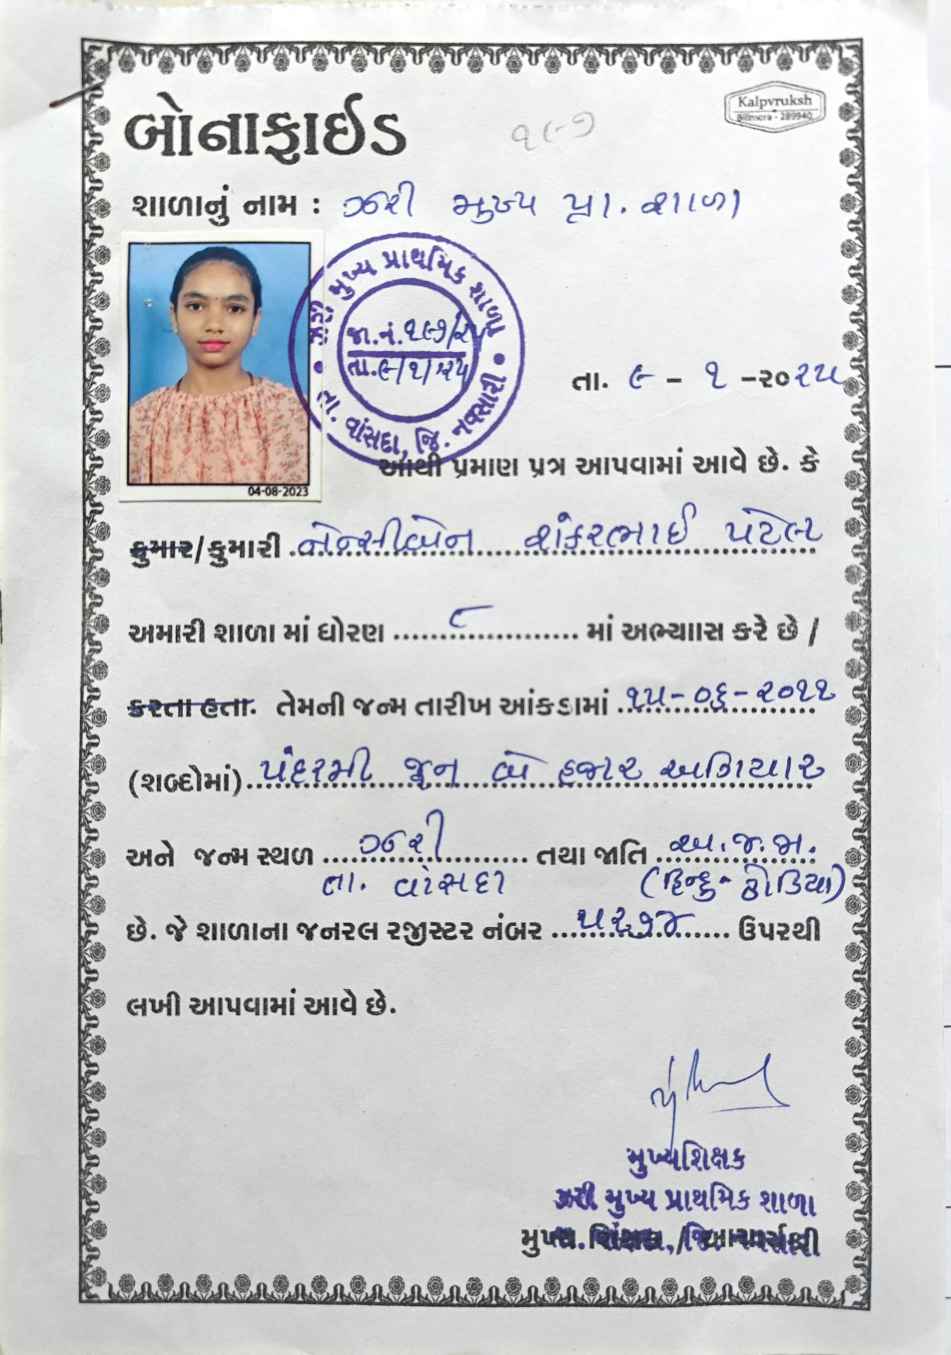 Kalpvruksh
Bilimora - 289940
બોનાફાઈડ
૧૯૭
શાળાનું નામ : ઝરી મુખ્ય પ્રા. શાળા
ઝરી મુખ્ય પ્રાથમિક શાળા
જા.નં.૧૯૭/૨૫
તા.૯/૧/૨૫
તા. વાંસદા, જિ. નવસારી
04-08-2023
તા. ૯ - ૧ -૨૦૨૫
આથી પ્રમાણ પત્ર આપવામાં આવે છે. કે
કુમાર/કુમારી નેન્સીબેન શંકરભાઈ પટેલ
અમારી શાળા માં ધોરણ ૮ માં અભ્યાાસ કરે છે /
કરતા હતા. તેમની જન્મ તારીખ આંકડામાં ૧૫-૦૬-૨૦૧૧
(શબ્દોમાં) પંદરમી જૂન બે હજાર અગિયાર
અને જન્મ સ્થળ ઝરી તથા જાતિ અ.જ.જા.
તા. વાંસદા (હિન્દુ - ઢોડિયા)
છે. જે શાળાના જનરલ રજીસ્ટર નંબર ૫૨૭૪ ઉપરથી
લખી આપવામાં આવે છે.
મુખ્યશિક્ષક
ઝરી મુખ્ય પ્રાથમિક શાળા